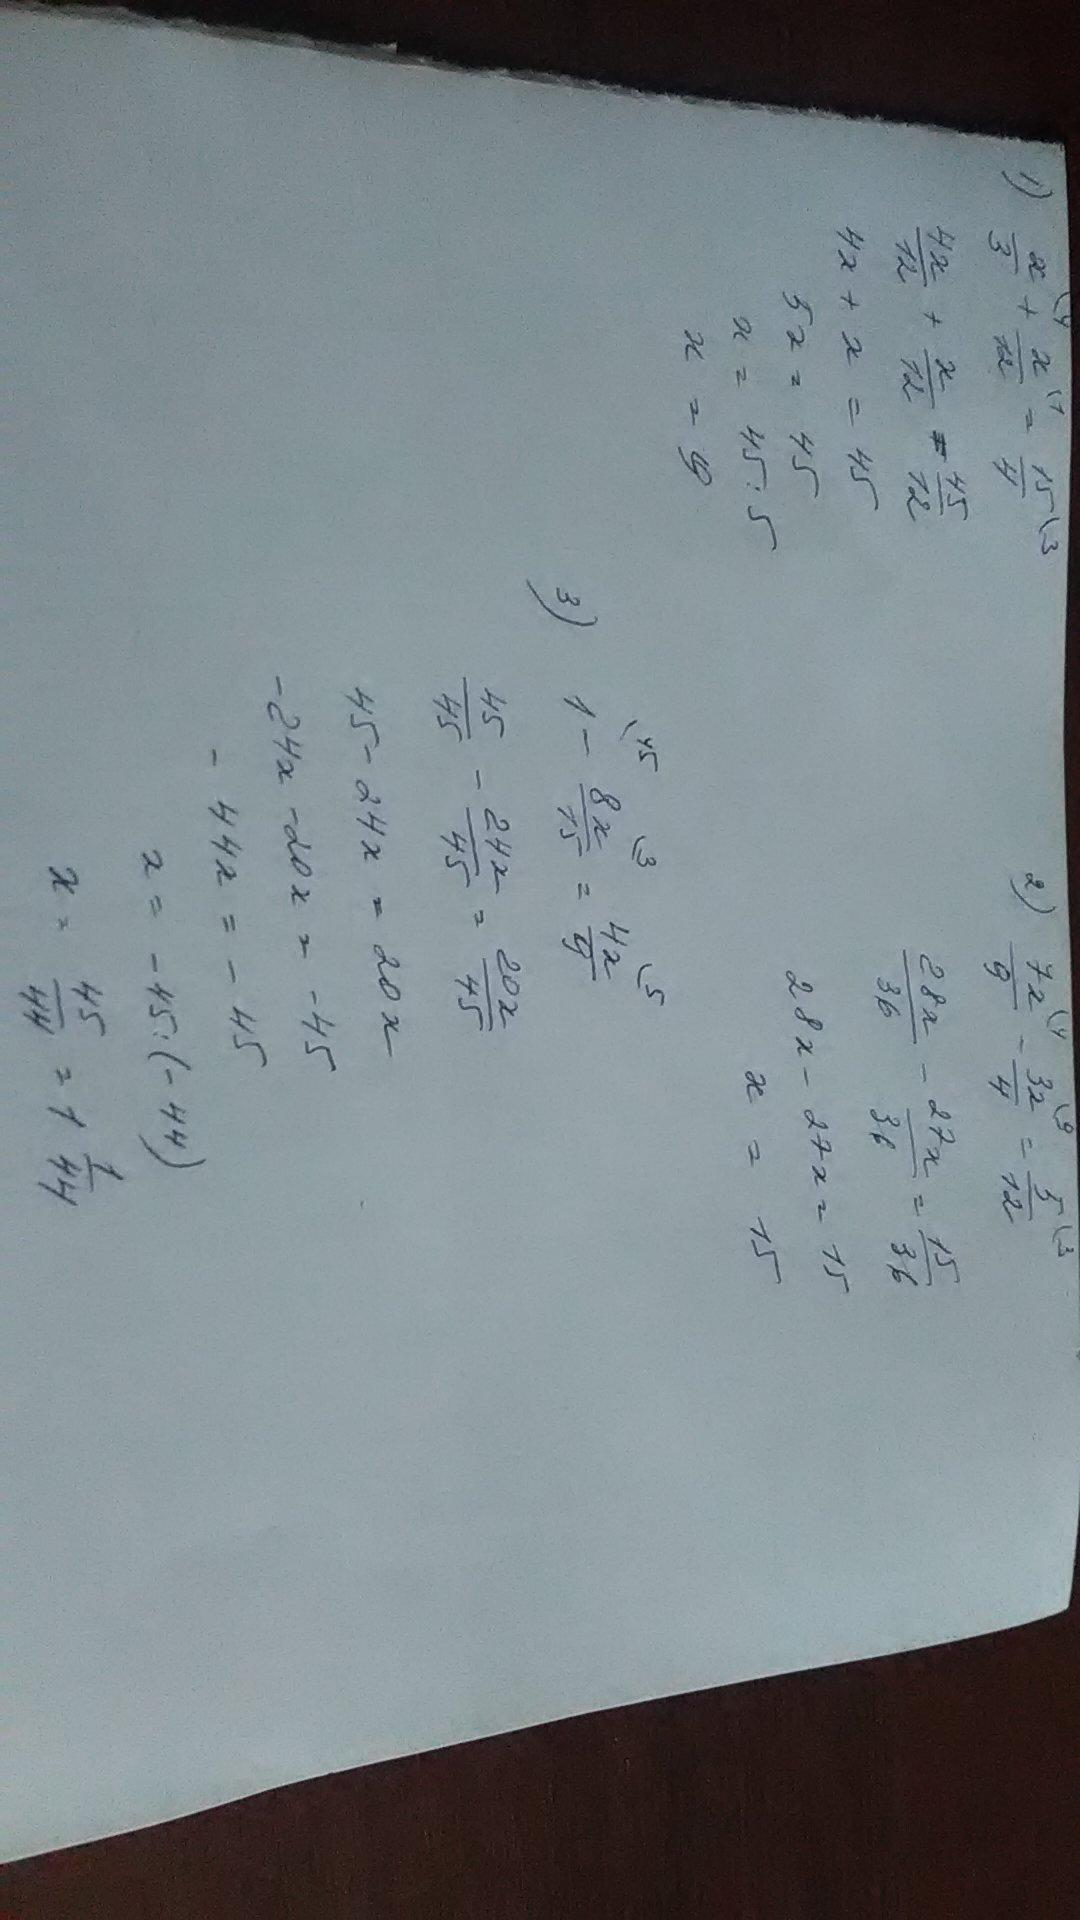 1) x/3 \4 + x/12 \1 = 15/4 \3
4x/12 + x/12 = 45/12
4x + x = 45
5x = 45
x = 45:5
x = 9
2) 7x/9 \4 - 3x/4 \9 = 5/12 \3
28x/36 - 27x/36 = 15/36
28x - 27x = 15
x = 15
3) 1 \45 - 8x/15 \3 = 4x/9 \5
45/45 - 24x/45 = 20x/45
45 - 24x = 20x
-24x - 20x = -45
- 44x = - 45
x = - 45:(- 44)
x = 45/44 = 1 1/44